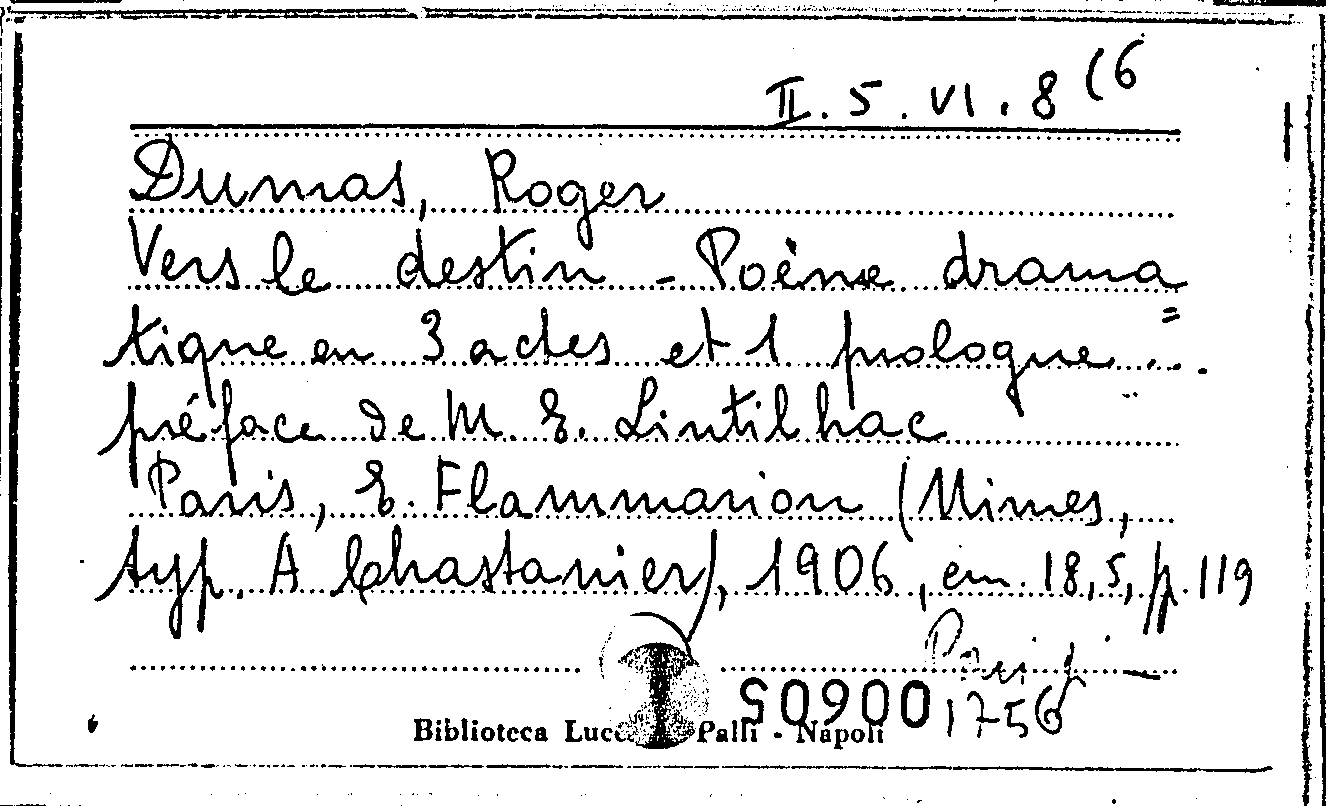 II. 5. VI. 8 (6
Dumas, Roger
Vers le destin - Poème drama
tique en 3 actes et 1 prologue...
préface de M. E. Lintilhac
Paris, E. Flammarion (Nimes,
typ. A Chastanier), 1906, cm. 18,5, p. 119
50900
1756
Biblioteca Lucc Palli - Napoli